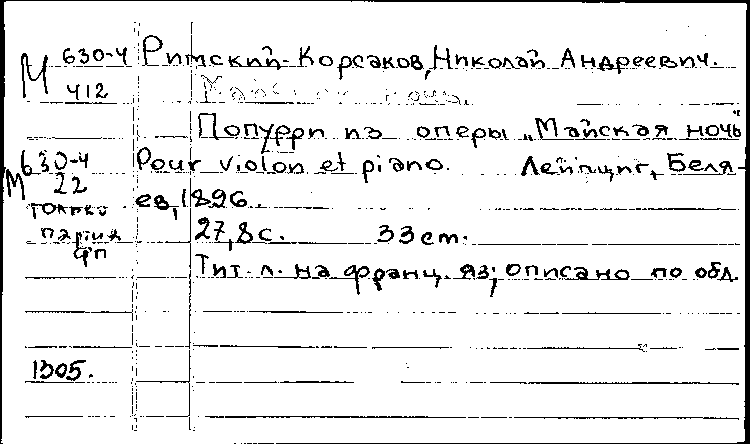 М 630-4 Римский-Корсаков, Николай Андреевич.
412 Майская ночь.
Попурри из оперы „Майская ночь"
М 630-4 Pour violon et piano. Лейпциг, Беля-
22 ев, 1896.
только
партия 27,8 с. 33 cm.
фп
Тит. л. на франц. яз; описано по обл.
1305.